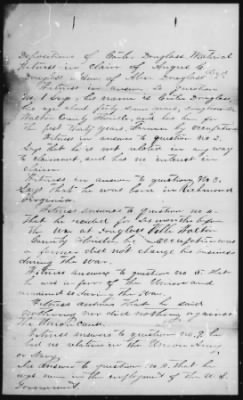 Depositions of Carle Douglass Material
Witness in claim of Angus G.
Douglass Admr. of Alex Douglass
Witness in answer to question
No. 1 Says, his name is Carle Douglass
his age about fifty some,
Walton County Florida, and has been for
the past thirty years, Farmer by occupation
Witness answers to question no 2.
Says that he is not related in any way
to claimant, and has no interest in
claim
Witness in answer to question No 3.
Says that he was born in Richmond
Virginia.
Witness answers to question no 4.
that he resided for six months before
the war at Douglass Walton
County Florida, his occupation was
a farmer, did not change his business
during the war.
Witness answers to question no 5. that
he was in favor of the Union and
remained so during the war.
Witness answers that he said
nothing nor did nothing against
the Union Cause.
Witness answers to question no. 7. he
had no relation in the Union Army
or Navy.
In answer to question no 8. that he
was never in the employment of the U.S.
Government.